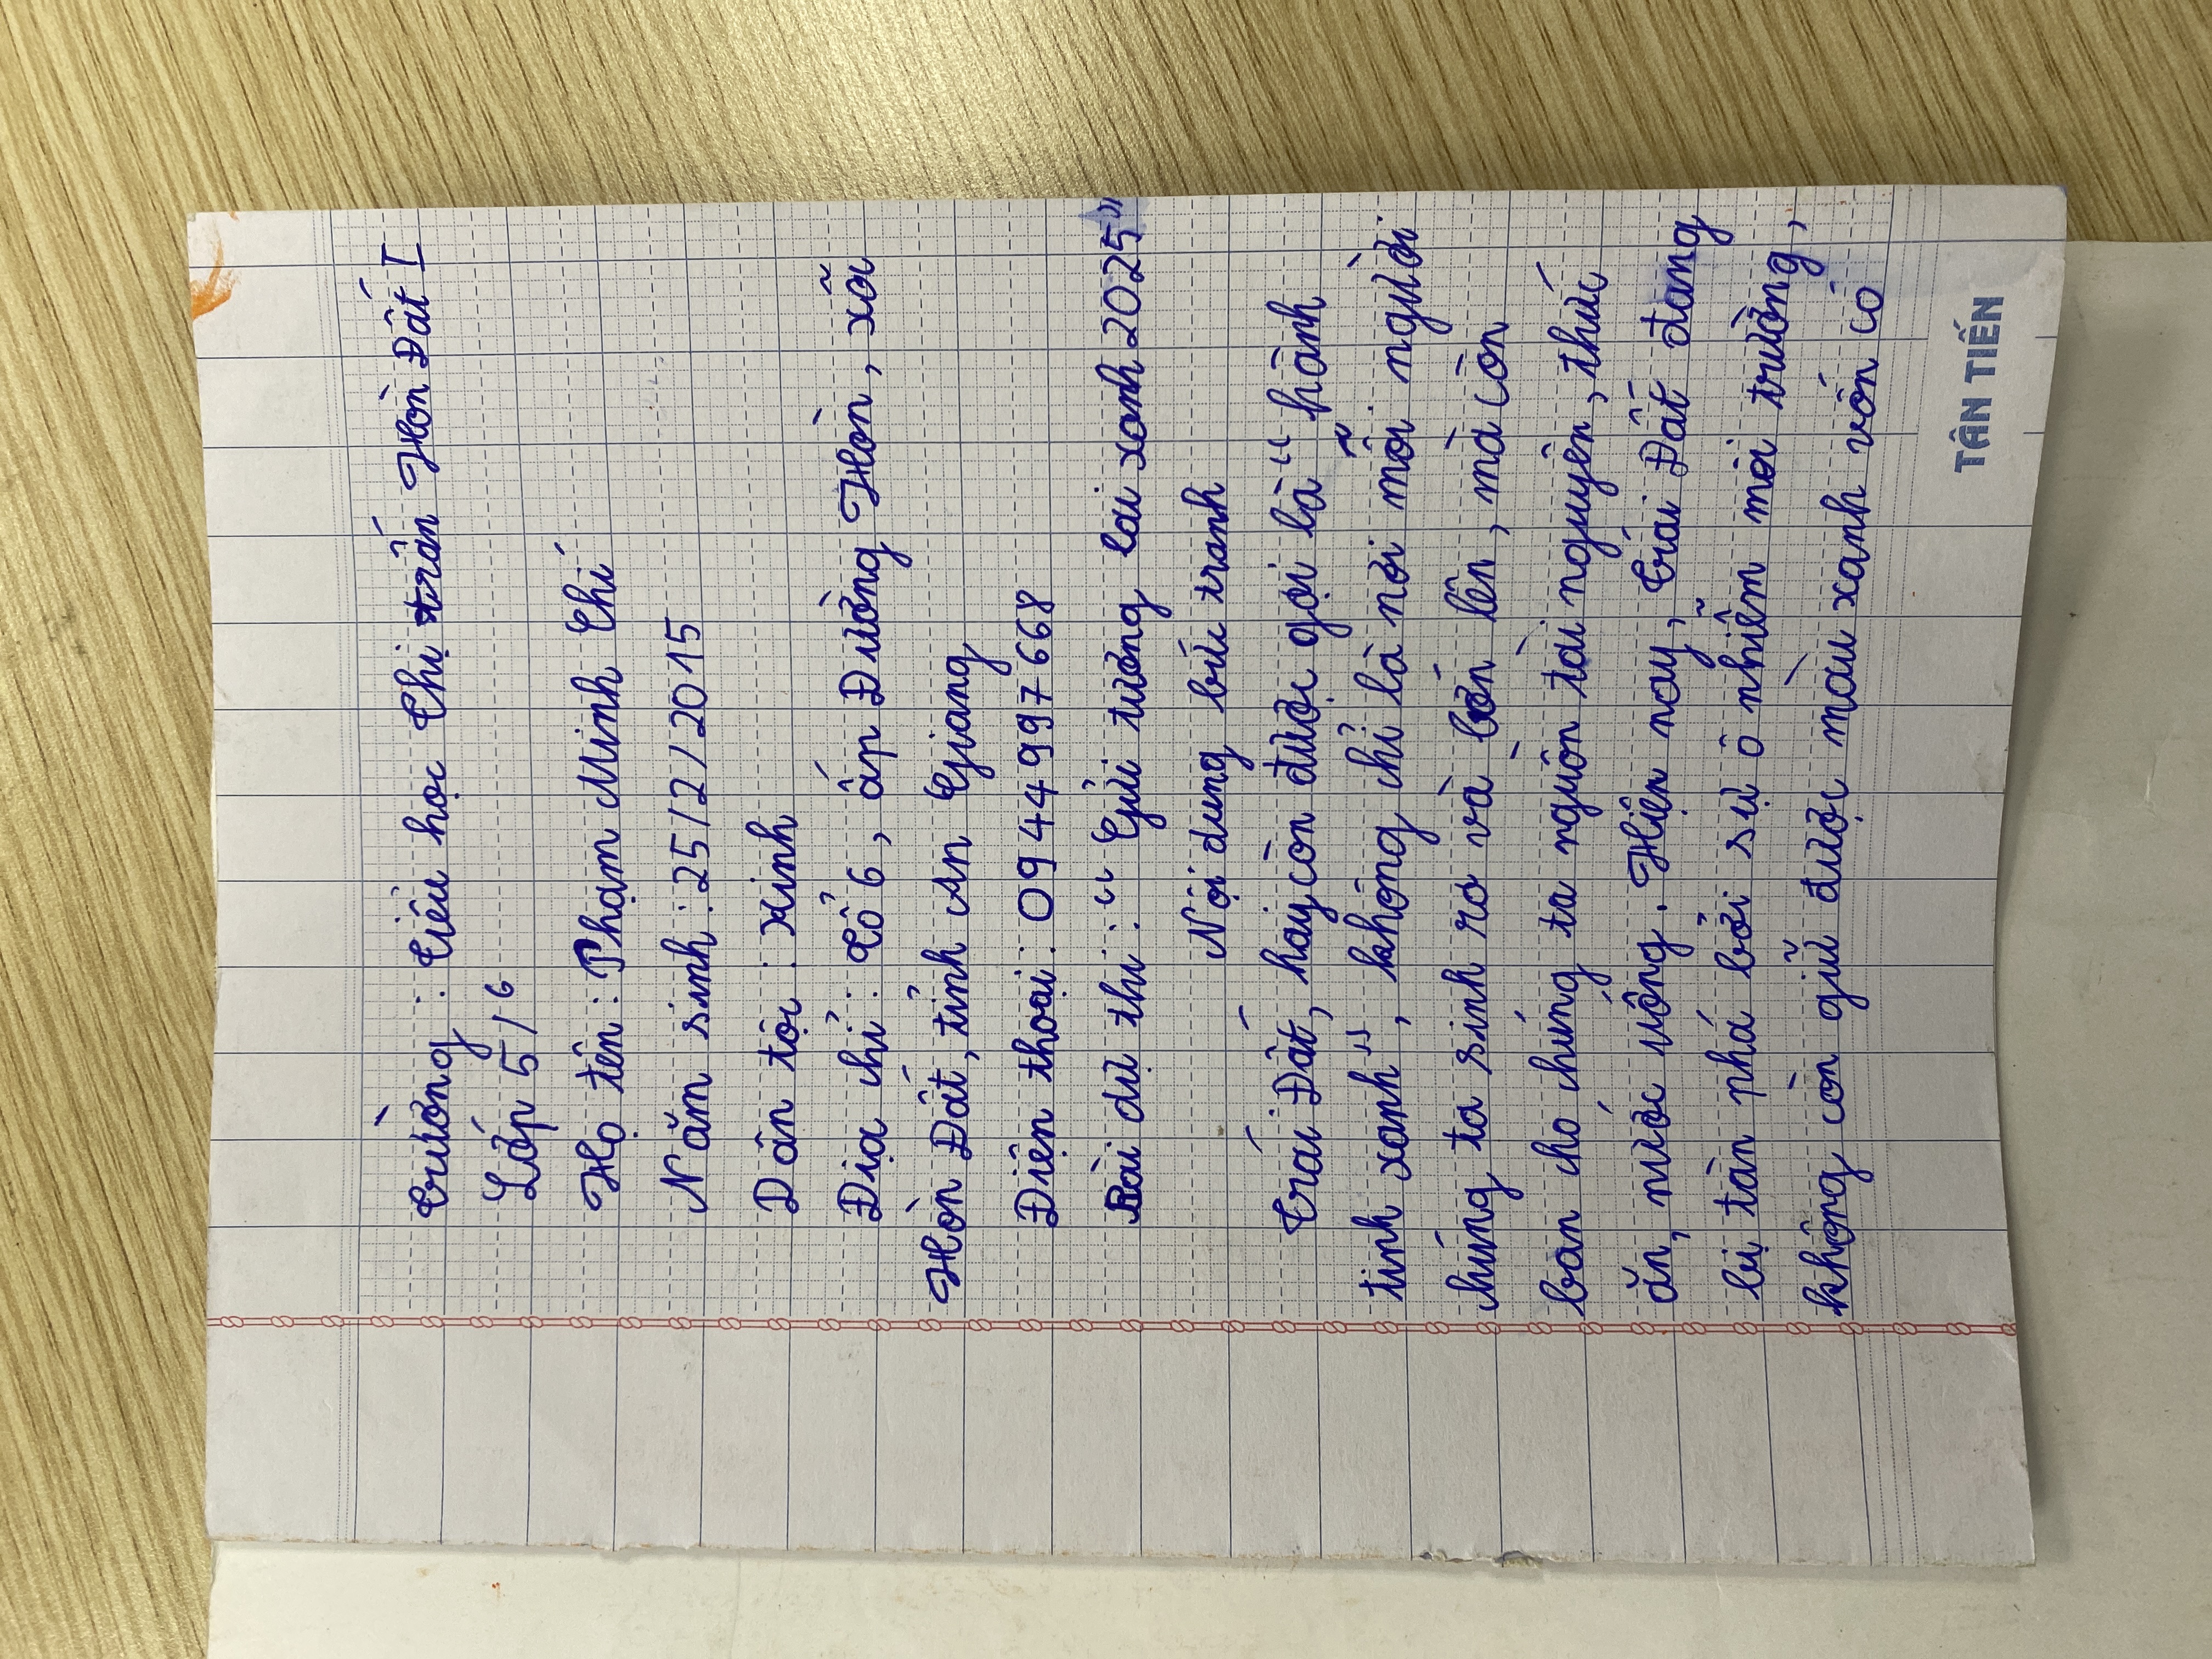 Trường : Tiểu học Thị trấn Hòn Đất I
Lớp 5/6
Họ tên : Phạm Minh Thi
Năm sinh : 25/2/2015
Dân tộc : Kinh
Địa chỉ : Tổ 6, ấp Đường Hòn, xã
Hòn Đất, tỉnh An Giang
Điện thoại : 0944997668
Bài dự thi : " Gửi tương lai xanh 2025"
Nội dung bức tranh
Trái Đất, hay còn được gọi là " hành
tinh xanh ", không chỉ là nơi mỗi người
chúng ta sinh ra và lớn lên, mà còn
ban cho chúng ta nguồn tài nguyên, thức
ăn, nước uống. Hiện nay, Trái Đất đang
bị tàn phá bởi sự ô nhiễm môi trường,
không còn giữ được màu xanh vốn có
TÂN TIẾN